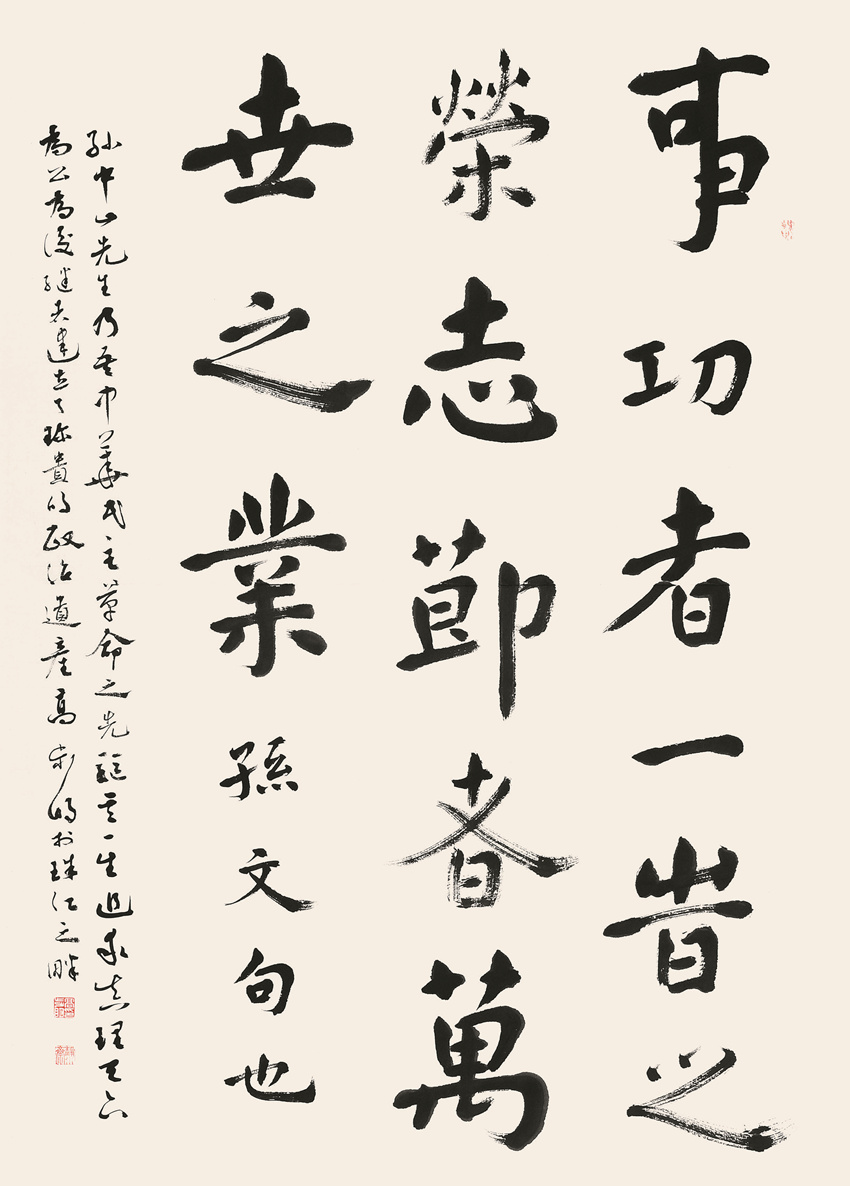 事功者一時之
榮志節者萬
世之業孫文句也
孙中山先生乃吾中華民主革命之先驅其一生追求真理天下
為公為後継者建立了珍貴的政治遺產高
於珠江之畔